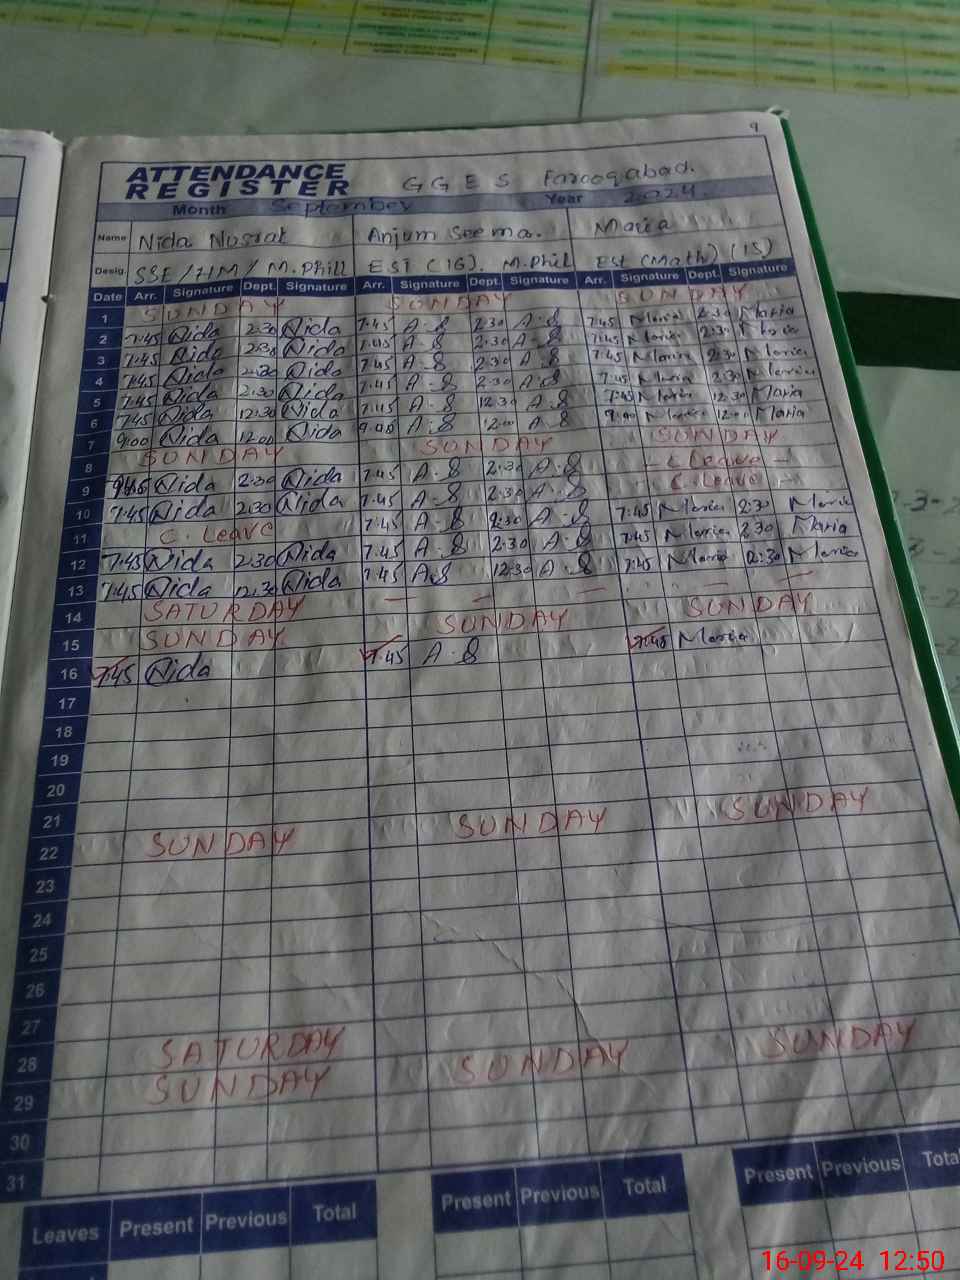 9
ATTENDANCE REGISTER GGES Farooqabad.
Month September Year 2024
Name Nida Nusrat Anjum Seema. Maria
Desig. SSE/HM/M.Phill EST (16). M.Phil Est (Math) (15)
Date Arr. Signature Dept. Signature Arr. Signature Dept. Signature Arr. Signature Dept. Signature
1 SUNDAY SUNDAY SUNDAY
2 7:45 Nida 2:30 Nida 7.45 A.S 2:30 A.S 7:45 Maria 2:30 Maria
3 7:45 Nida 2:30 Nida 7.45 A.S 2.30 A.S 7:45 Maria 2:30 Maria
4 7:45 Nida 2:30 Nida 7.45 A.S 2:30 A.S 7:45 Maria 2:30 Maria
5 7:45 Nida 2:30 Nida 7.45 A.S 2:30 A.S 7:45 Maria 2:30 Maria
6 7:45 Nida 12:30 Nida 7:45 A.S 12:30 A.S 7:45 Maria 12:30 Maria
7 9:00 Nida 12:00 Nida A.S 12:00 A.S 9:00 Maria 12:00 Maria
8 SUNDAY SUNDAY SUNDAY
9 Nida 2:30 Nida 7.45 A.S 2:30 A.S - C Leave -
10 7:45 Nida 2:30 Nida 7.45 A.S 2:30 A.S C. Leave
11 C. Leave 7.45 A.S 2:30 A.S 7:45 Maria 2:30 Maria
12 7:45 Nida 2:30 Nida 7.45 A.S 2:30 A.S 7:45 Maria 2:30 Maria
13 7:45 Nida 12:30 Nida 7.45 A.S 12:30 A.S 7:45 Maria 12:30 Maria
14 SATURDAY — — — — —
15 SUNDAY SUNDAY SUNDAY
16 7:45 Nida 7.45 A.S 7:45 Maria
17
18
19
20
21
22 SUNDAY SUNDAY SUNDAY
23
24
25
26
27
28 SATURDAY
29 SUNDAY SUNDAY SUNDAY
30
31
Leaves Present Previous Total Present Previous Total Present Previous Total
16-09-24 12:50